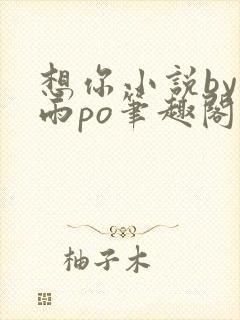 想你小説by
雨po筆趣閣
柚子木